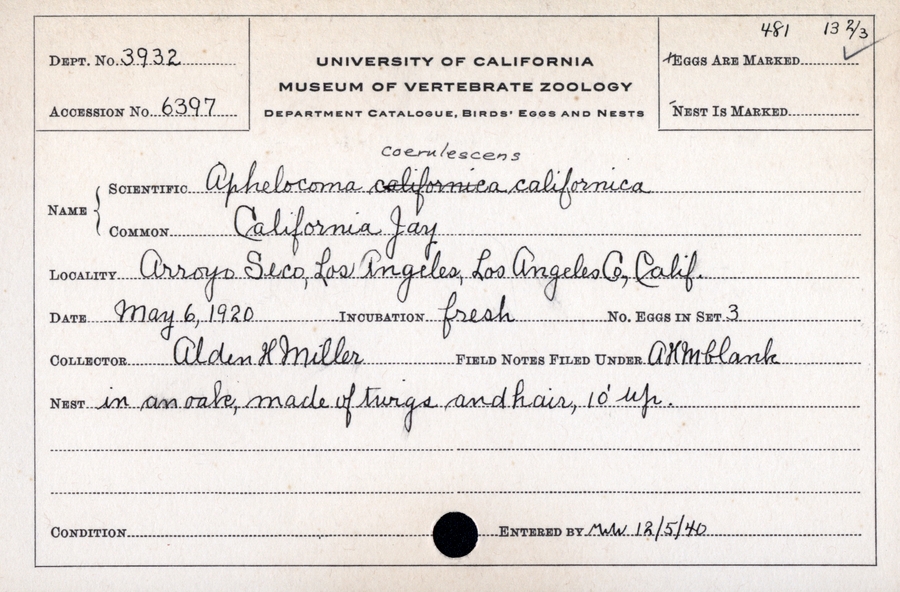 481 13 2/3
DEPT. NO. 3932
UNIVERSITY OF CALIFORNIA
EGGS ARE MARKED
MUSEUM OF VERTEBRATE ZOOLOGY
ACCESSION NO. 6397
DEPARTMENT CATALOGUE, BIRDS' EGGS AND NESTS
NEST IS MARKED
coerulescens
NAME
SCIENTIFIC Aphelocoma californica californica
COMMON California Jay
LOCALITY Arroyo Seco, Los Angeles, Los Angeles Co, Calif.
DATE May 6, 1920 INCUBATION fresh NO. EGGS IN SET 3
COLLECTOR Alden H Miller FIELD NOTES FILED UNDER AHM blank
NEST in an oak, made of twigs and hair, 10' up.
CONDITION ENTERED BY MW 12/5/40